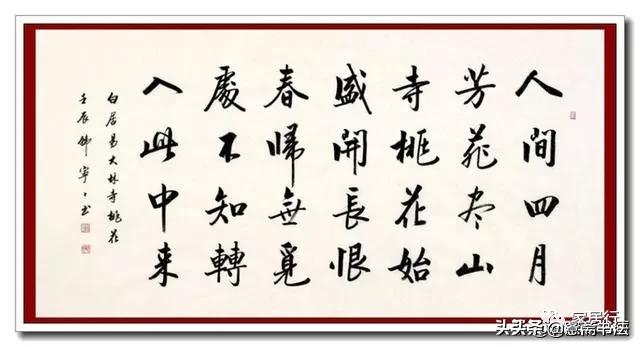 人間四月
芳菲尽山
寺桃花始
盛開長恨
春歸無覓
處不知轉
入此中来
白居易大林寺桃花
壬辰 寧〻书
家居行
头条 书法